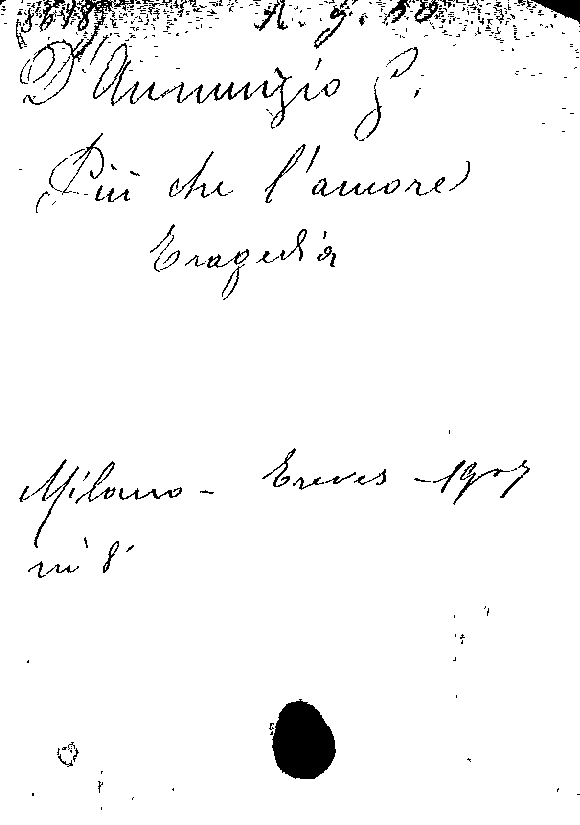 D'Annunzio G.
Più che l'amore
Tragedia
Milano - Treves - 1907
in 8°